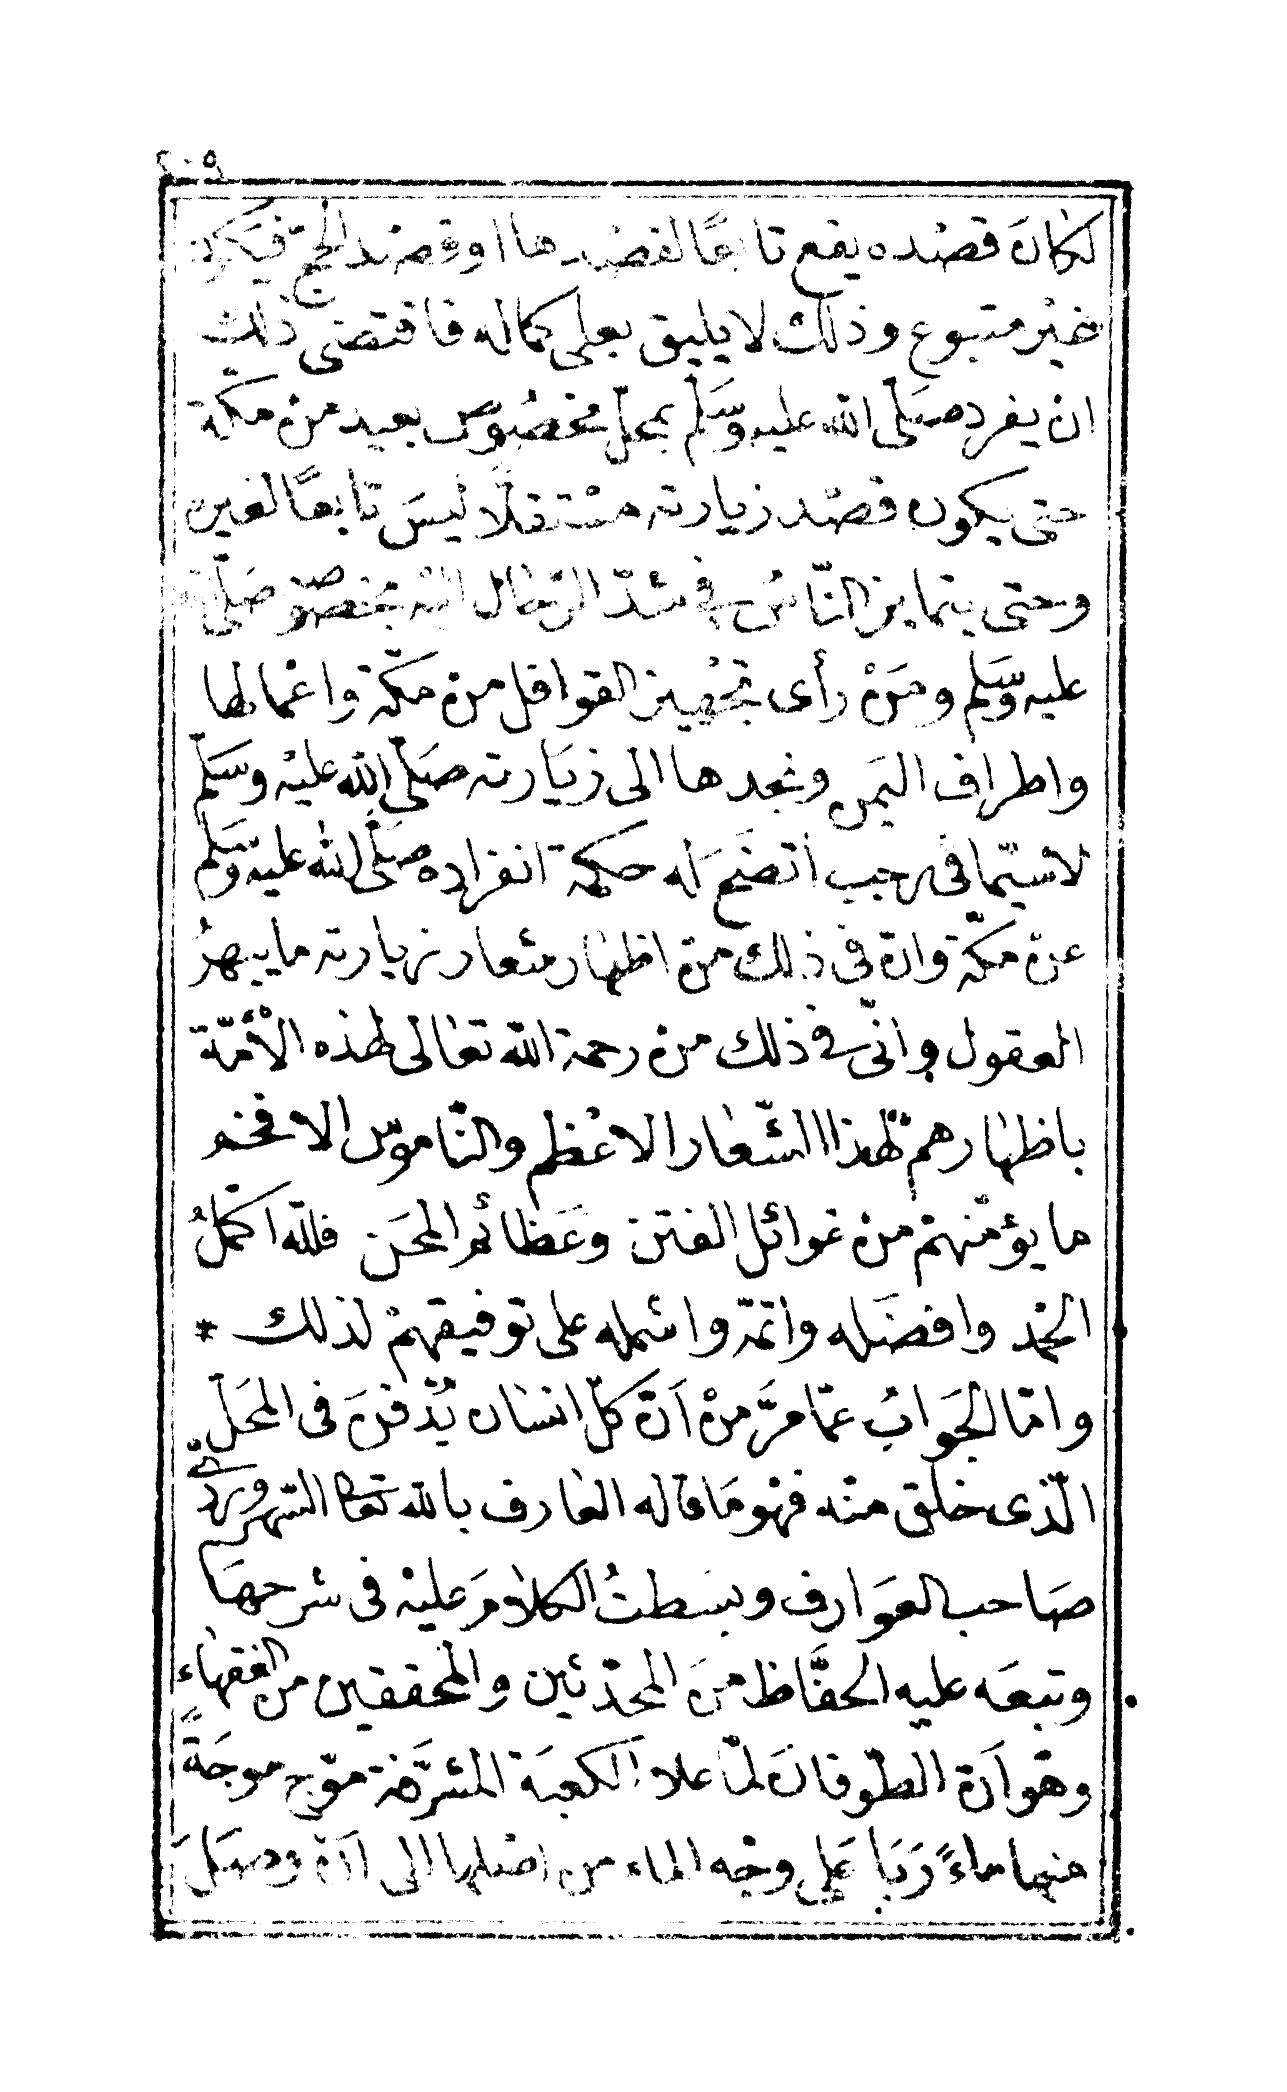 ٢٠٩
لكان قصده يقع تابعًا لقصدها او قصد الحجّ فيكون
غير متبوع وذلك لا يليق بعلى كماله فاقتضى ذلك
ان يفرد صَلّى الله عليه وسَلّم بمحلّ مخصُوص بعيد من مكة
حتى يكون قصْد زيارته مسْتقلّا ليسَ تابعًا لغيره
وحتى يتمايز النّاسُ في شدّ الرّحال اليْه بخصوصه صَلّى الله
عليه وَسَلّم ومَنْ رأى تجْهيز القوافل من مكّة واعْمالها
واطراف اليَمن ونجدها الى زيَارته صَلّى الله عليْه وسَلّم
لاسيّما فى رجب اتضَحَ لَه حكمة انفراده صَلّى الله عليه وَسّلم
عن مكّة وانّ فى ذلك من اظهٰار شعار زيارته ما يبهرُ
العقول وانّ فى ذلك من رحمة الله تعٰالى لهٰذه الْأُمّة
باظهٰارهم لهٰذا الشّعٰار الاعْظم والنّاموس الافخم
ما يؤمّنهمْ من غوائل الفتن وعَظائم المحَن فللّه اكملُ
الحمْد وافضَله واتمّه واشمله على توفيقهمْ لذلك *
وامّا الجَوابُ عمّا مرَّ منْ اَنّ كلّ انسٰان يُدْفنَ فى المَحَلّ
الّذى خلق منْه فهْو مَا قاله العٰارف بالله تعٰا السّهروردىّ
صَاحب العَوارف وبسَطتُ الكلاٰمَ عليْه فى شرحهَا
وتبعَه عليه الحفَّاظ منَ المحدّثين والمحققين من الفقهٰاء
وهْو اَنّ الطّوفانَ لمّا علا الكعبَة المشرَّفة موّج موجَةً
منها ماءً رَبَا عَلى وجْه الماء من اصْلها الى اَنْ وصَلَ